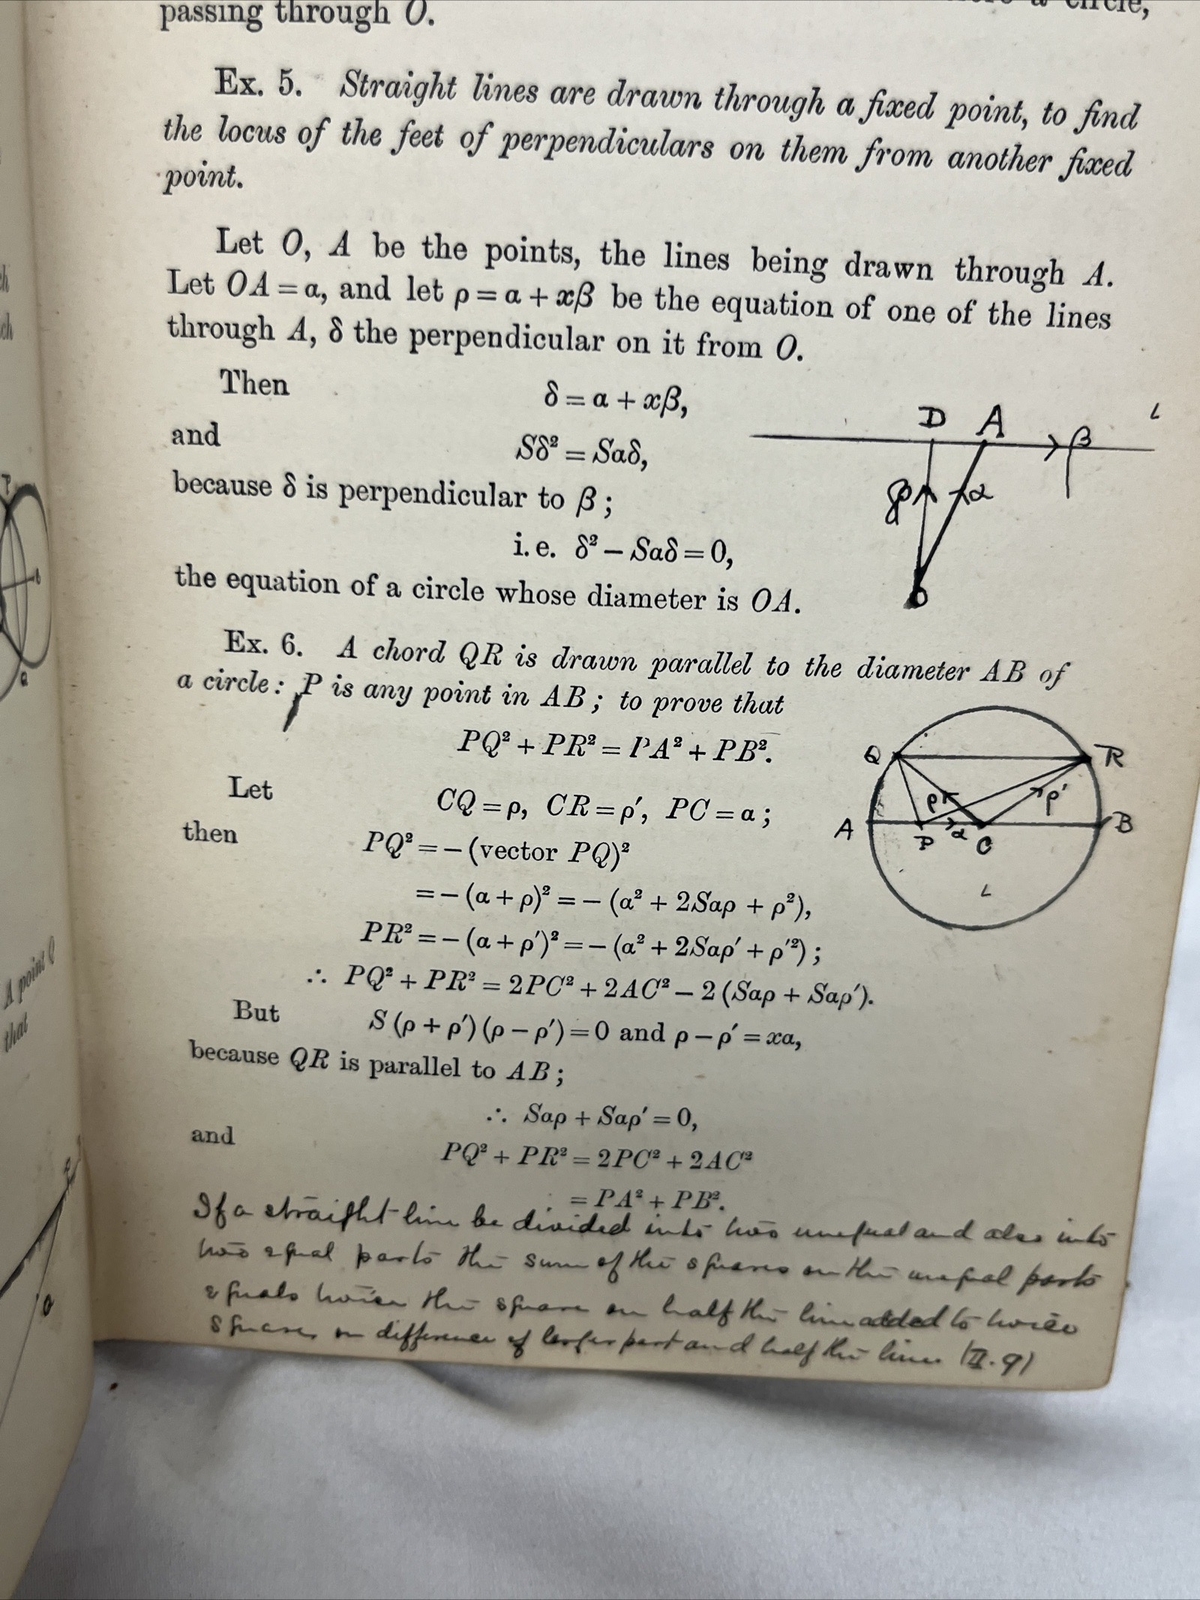 passing through O.
Ex. 5. Straight lines are drawn through a fixed point, to find
the locus of the feet of perpendiculars on them from another fixed
point.
Let O, A be the points, the lines being drawn through A.
Let OA = α, and let ρ = α + xβ be the equation of one of the lines
through A, δ the perpendicular on it from O.
Then δ = α + xβ,
and Sδ² = Sαδ,
because δ is perpendicular to β;
i.e. δ² – Sαδ = 0,
the equation of a circle whose diameter is OA.
D A β
α
Ex. 6. A chord QR is drawn parallel to the diameter AB of
a circle: P is any point in AB; to prove that
PQ² + PR² = PA² + PB².
Let CQ = ρ, CR = ρ′, PC = α;
then PQ² = – (vector PQ)²
= – (α + ρ)² = – (α² + 2Sαρ + ρ²),
PR² = – (α + ρ′)² = – (α² + 2Sαρ′ + ρ′²);
∴ PQ² + PR² = 2PC² + 2AC² – 2 (Sαρ + Sαρ′).
But S (ρ + ρ′) (ρ – ρ′) = 0 and ρ – ρ′ = xα,
because QR is parallel to AB;
∴ Sαρ + Sαρ′ = 0,
and PQ² + PR² = 2PC² + 2AC²
= PA² + PB².
Q R
ρ ρ′
A P α C B
If a straight line be divided into two unequal and also into
two equal parts the sum of the squares on the unequal parts
equals twice the square on half the line added to twice
squares on difference of larger part and half the line (II.9)
A point Q
that